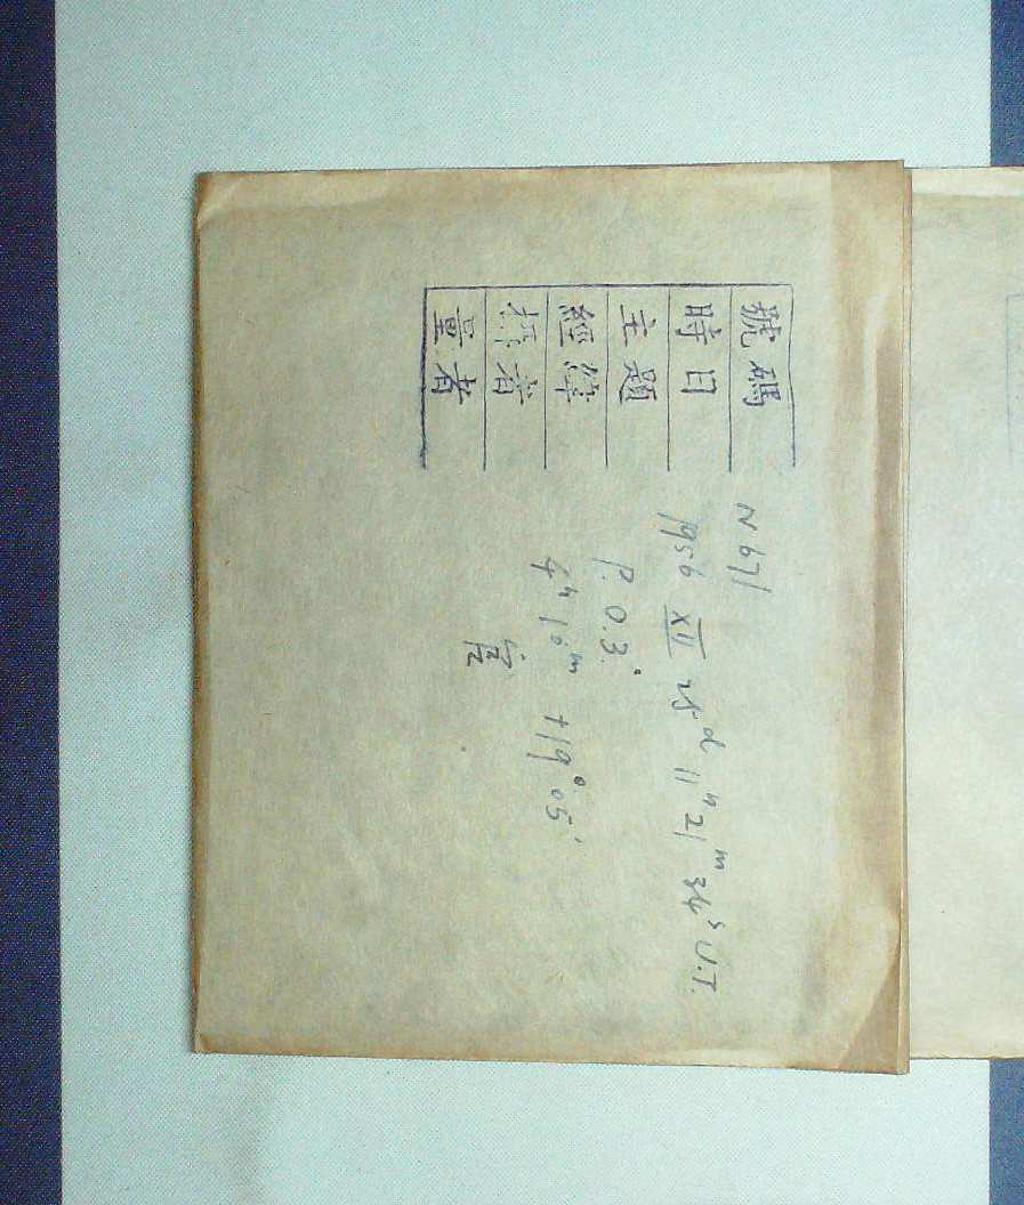 號碼 N671
時日 1956 XII 25ᵈ 11ʰ 21ᵐ 34ˢ U.T.
主題 P.O.3.
經緯 4ʰ 16ᵐ +19°05'
攝者
量者